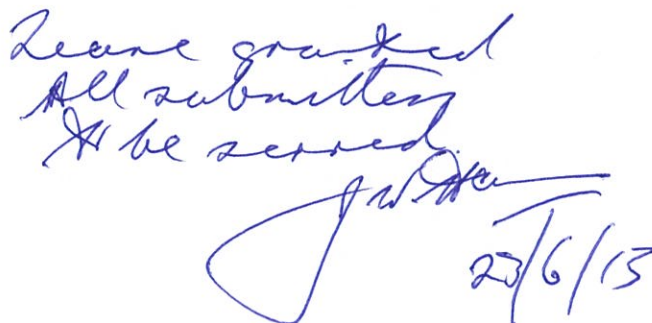 Leave granted
All submitters
to be served.
23/6/15